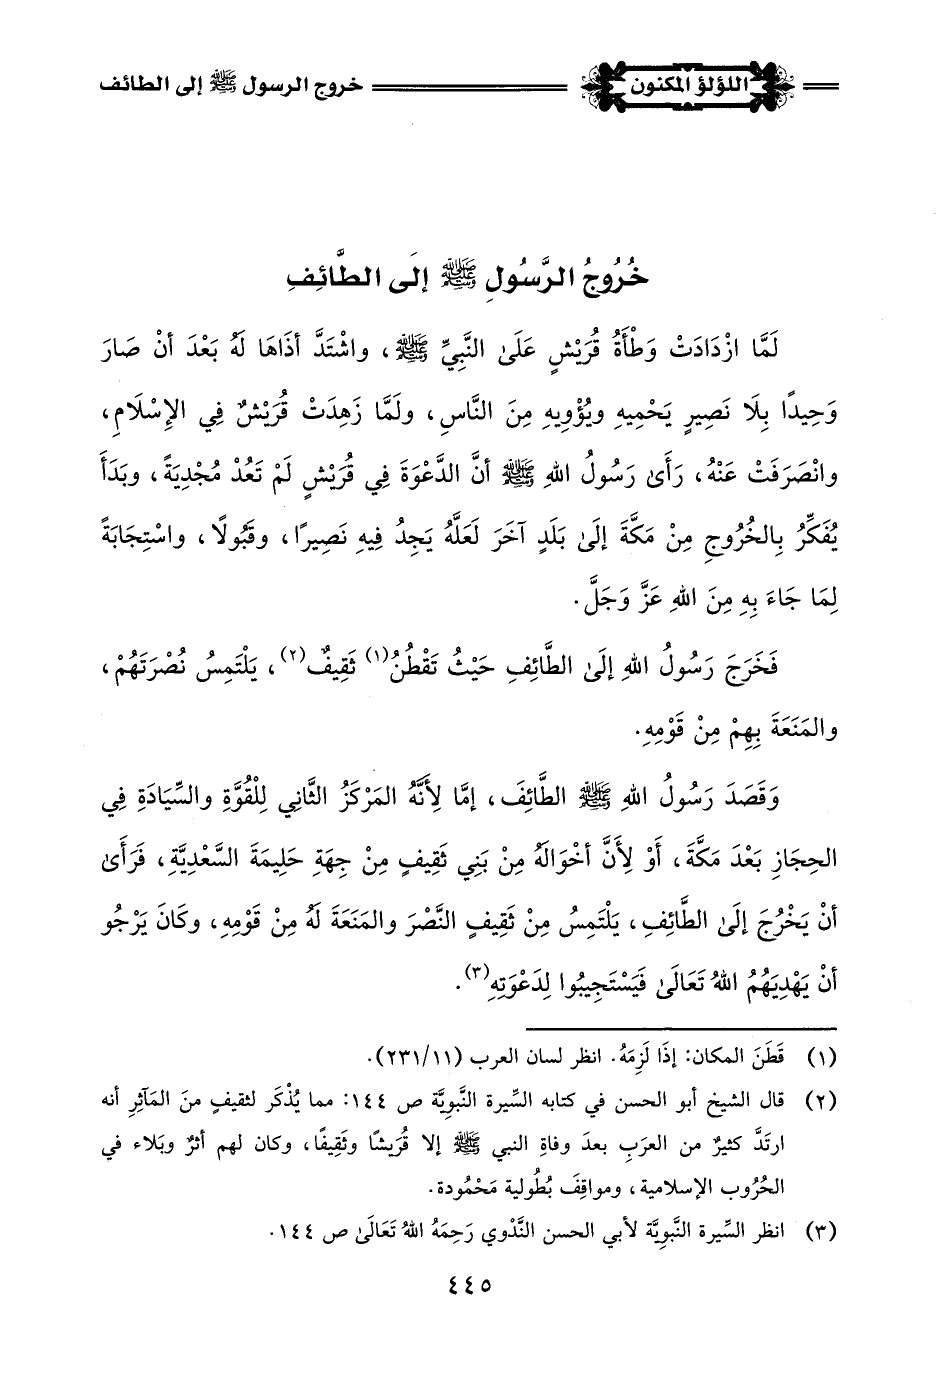 اللؤلؤ المكنون خروج الرسول ﷺ إلى الطائف
خُرُوجُ الرَّسُولِ ﷺ إلَى الطَّائِفِ
لَمَّا ازْدَادَتْ وَطْأَةُ قُرَيْشٍ عَلَىٰ النَّبِيِّ ﷺ، واشْتَدَّ أذَاهَا لَهُ بَعْدَ أنْ صَارَ
وَحِيدًا بِلَا نَصِيرٍ يَحْمِيهِ ويُؤْوِيهِ مِنَ النَّاسِ، ولَمَّا زَهِدَتْ قُرَيْشٌ فِي الإِسْلَامِ،
وانْصَرَفَتْ عَنْهُ، رَأَىٰ رَسُولُ اللهِ ﷺ أنَّ الدَّعْوَةَ فِي قُرَيْشٍ لَمْ تَعُدْ مُجْدِيَةً، وبَدَأَ
يُفَكِّرُ بِالخُرُوجِ مِنْ مَكَّةَ إلَىٰ بَلَدٍ آخَرَ لَعَلَّهُ يَجِدُ فِيهِ نَصِيرًا، وقَبُولًا، واسْتِجَابَةً
لِمَا جَاءَ بِهِ مِنَ اللهِ عَزَّ وَجَلَّ.
فَخَرَجَ رَسُولُ اللهِ إلَىٰ الطَّائِفِ حَيْثُ تَقْطُنُ(١) ثَقِيفٌ(٢)، يَلْتَمِسُ نُصْرَتَهُمْ،
والمَنَعَةَ بِهِمْ مِنْ قَوْمِهِ.
وَقَصَدَ رَسُولُ اللهِ ﷺ الطَّائِفَ، إمَّا لِأَنَّهُ المَرْكَزُ الثَّانِي لِلْقُوَّةِ والسِّيَادَةِ فِي
الحِجَازِ بَعْدَ مَكَّةَ، أوْ لِأَنَّ أخْوَالَهُ مِنْ بَنِي ثَقِيفٍ مِنْ جِهَةِ حَلِيمَةَ السَّعْدِيَّةِ، فَرَأَىٰ
أنْ يَخْرُجَ إلَىٰ الطَّائِفِ، يَلْتَمِسُ مِنْ ثَقِيفٍ النَّصْرَ والمَنَعَةَ لَهُ مِنْ قَوْمِهِ، وكَانَ يَرْجُو
أنْ يَهْدِيَهُمُ اللهُ تَعَالَىٰ فَيَسْتَجِيبُوا لِدَعْوَتِهِ(٣).
(١) قَطَنَ المكان: إذَا لَزِمَهُ. انظر لسان العرب (٢٣١/١١).
(٢) قال الشيخ أبو الحسن في كتابه السِّيرة النَّبوِيَّة ص ١٤٤: مما يُذْكَر لثقيفٍ منَ المَآثِرِ أنه
ارتَدَّ كثيرٌ من العرَبِ بعدَ وفاةِ النبي ﷺ إلا قُرَيشًا وثَقِيفًا، وكان لهم أثرٌ وبَلاء في
الحُرُوب الإسلامية، ومواقِفَ بُطُولية مَحْمُودة.
(٣) انظر السِّيرة النَّبوِيَّة لأبي الحسن النَّدْوي رَحِمَهُ اللهُ تَعَالَىٰ ص ١٤٤.
٤٤٥